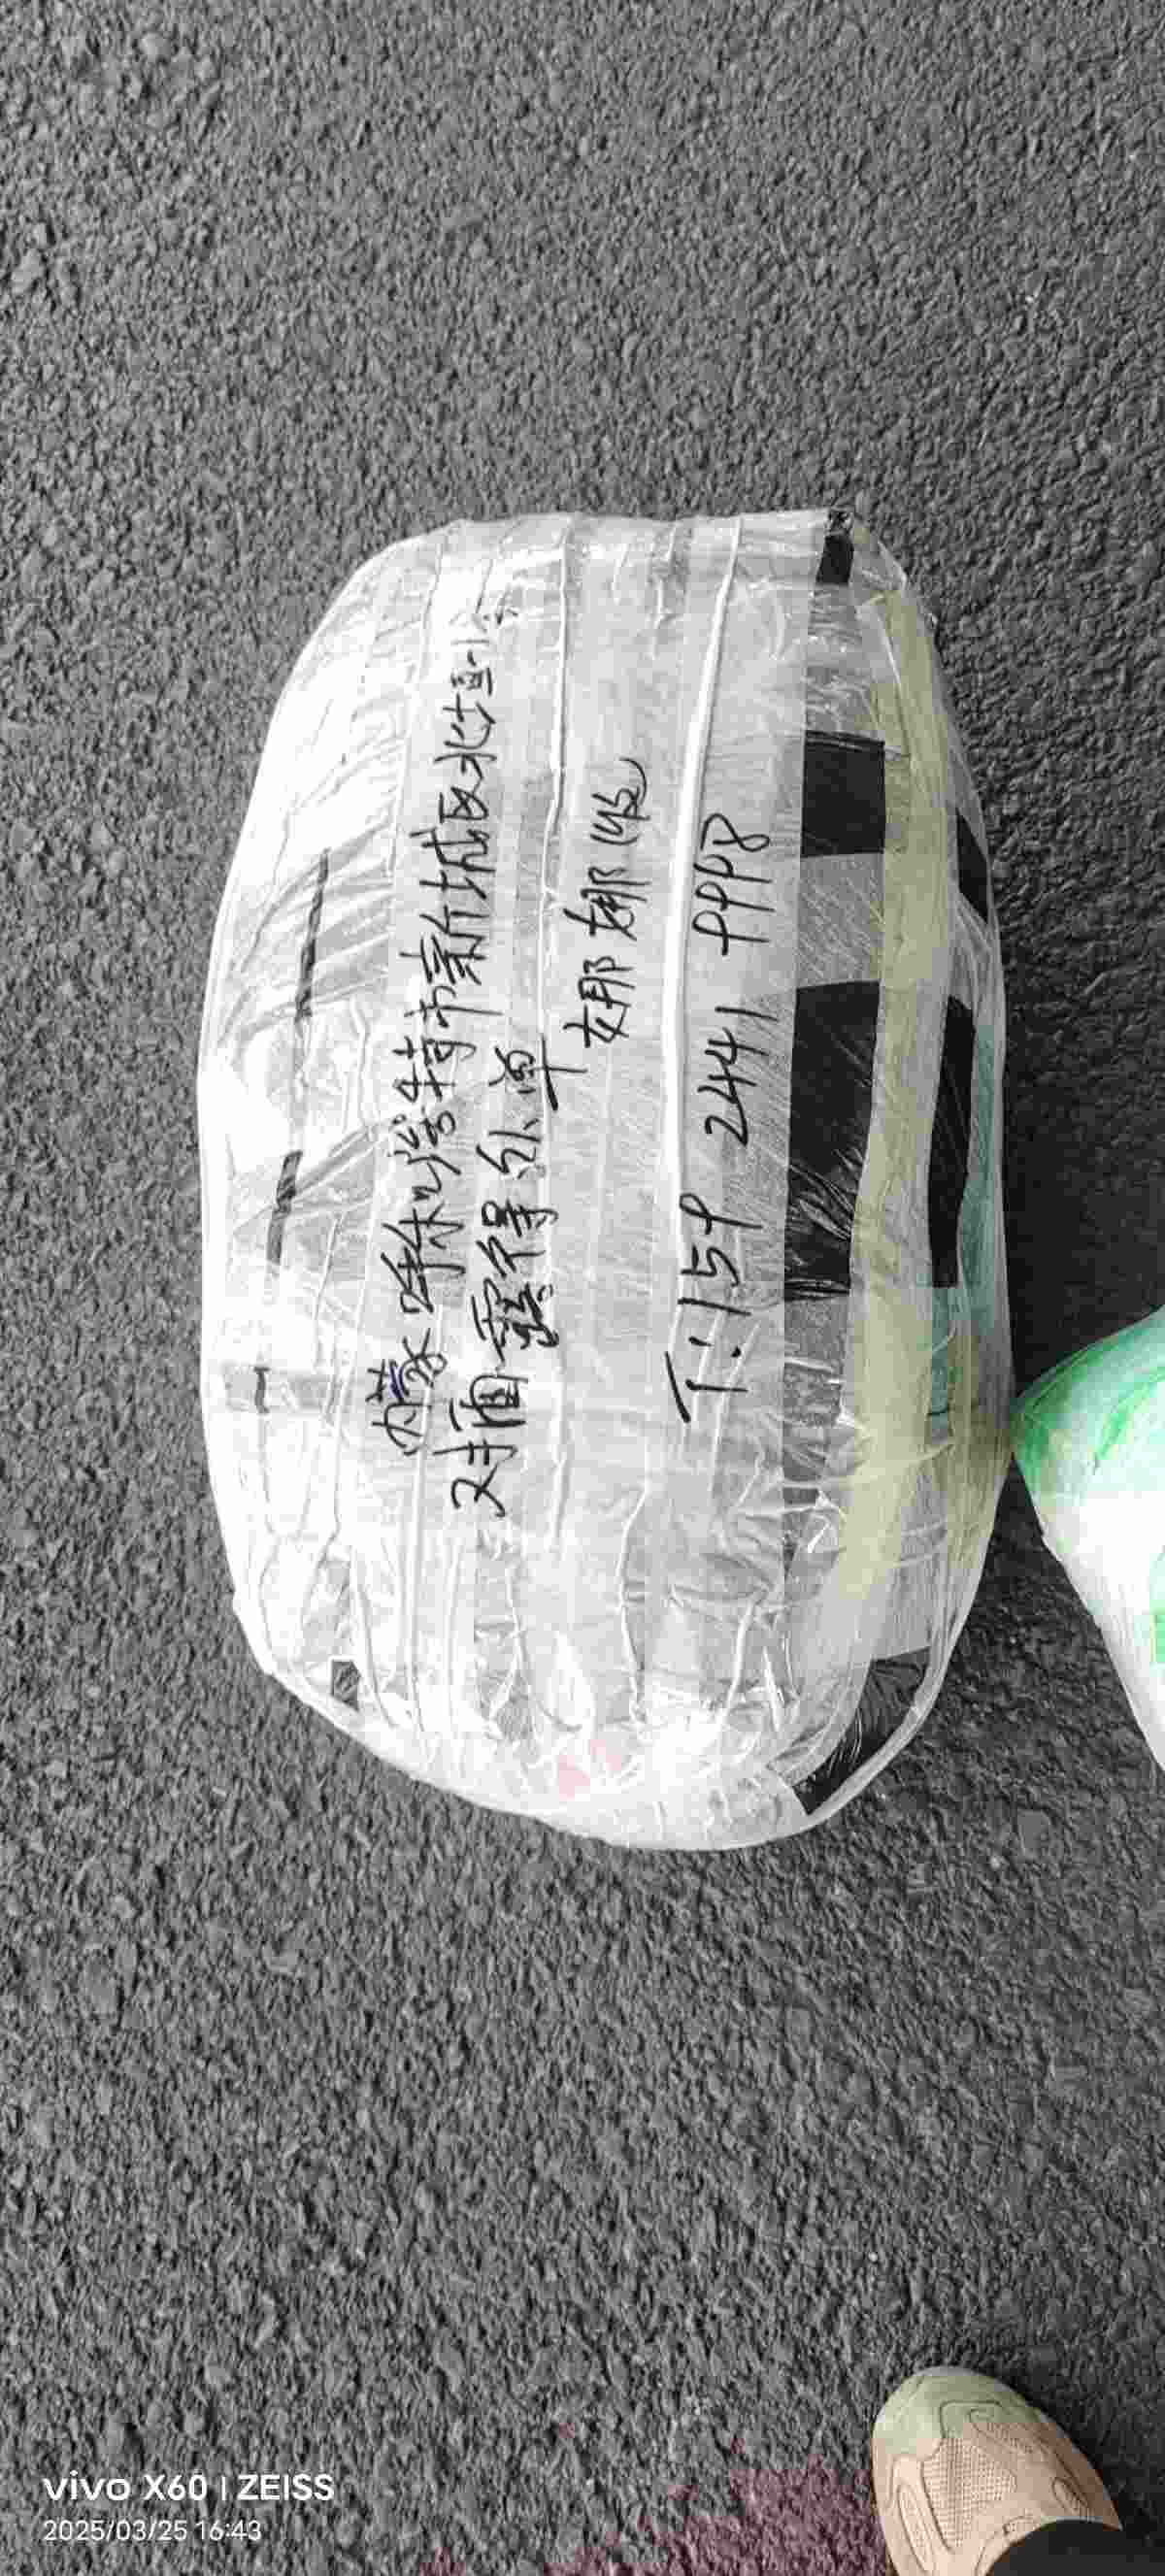 内蒙呼和浩特市新城区北垣小
对面露得外单
娜娜收
T:159 2441 9998
vivo X60 | ZEISS
2025/03/25 16:43